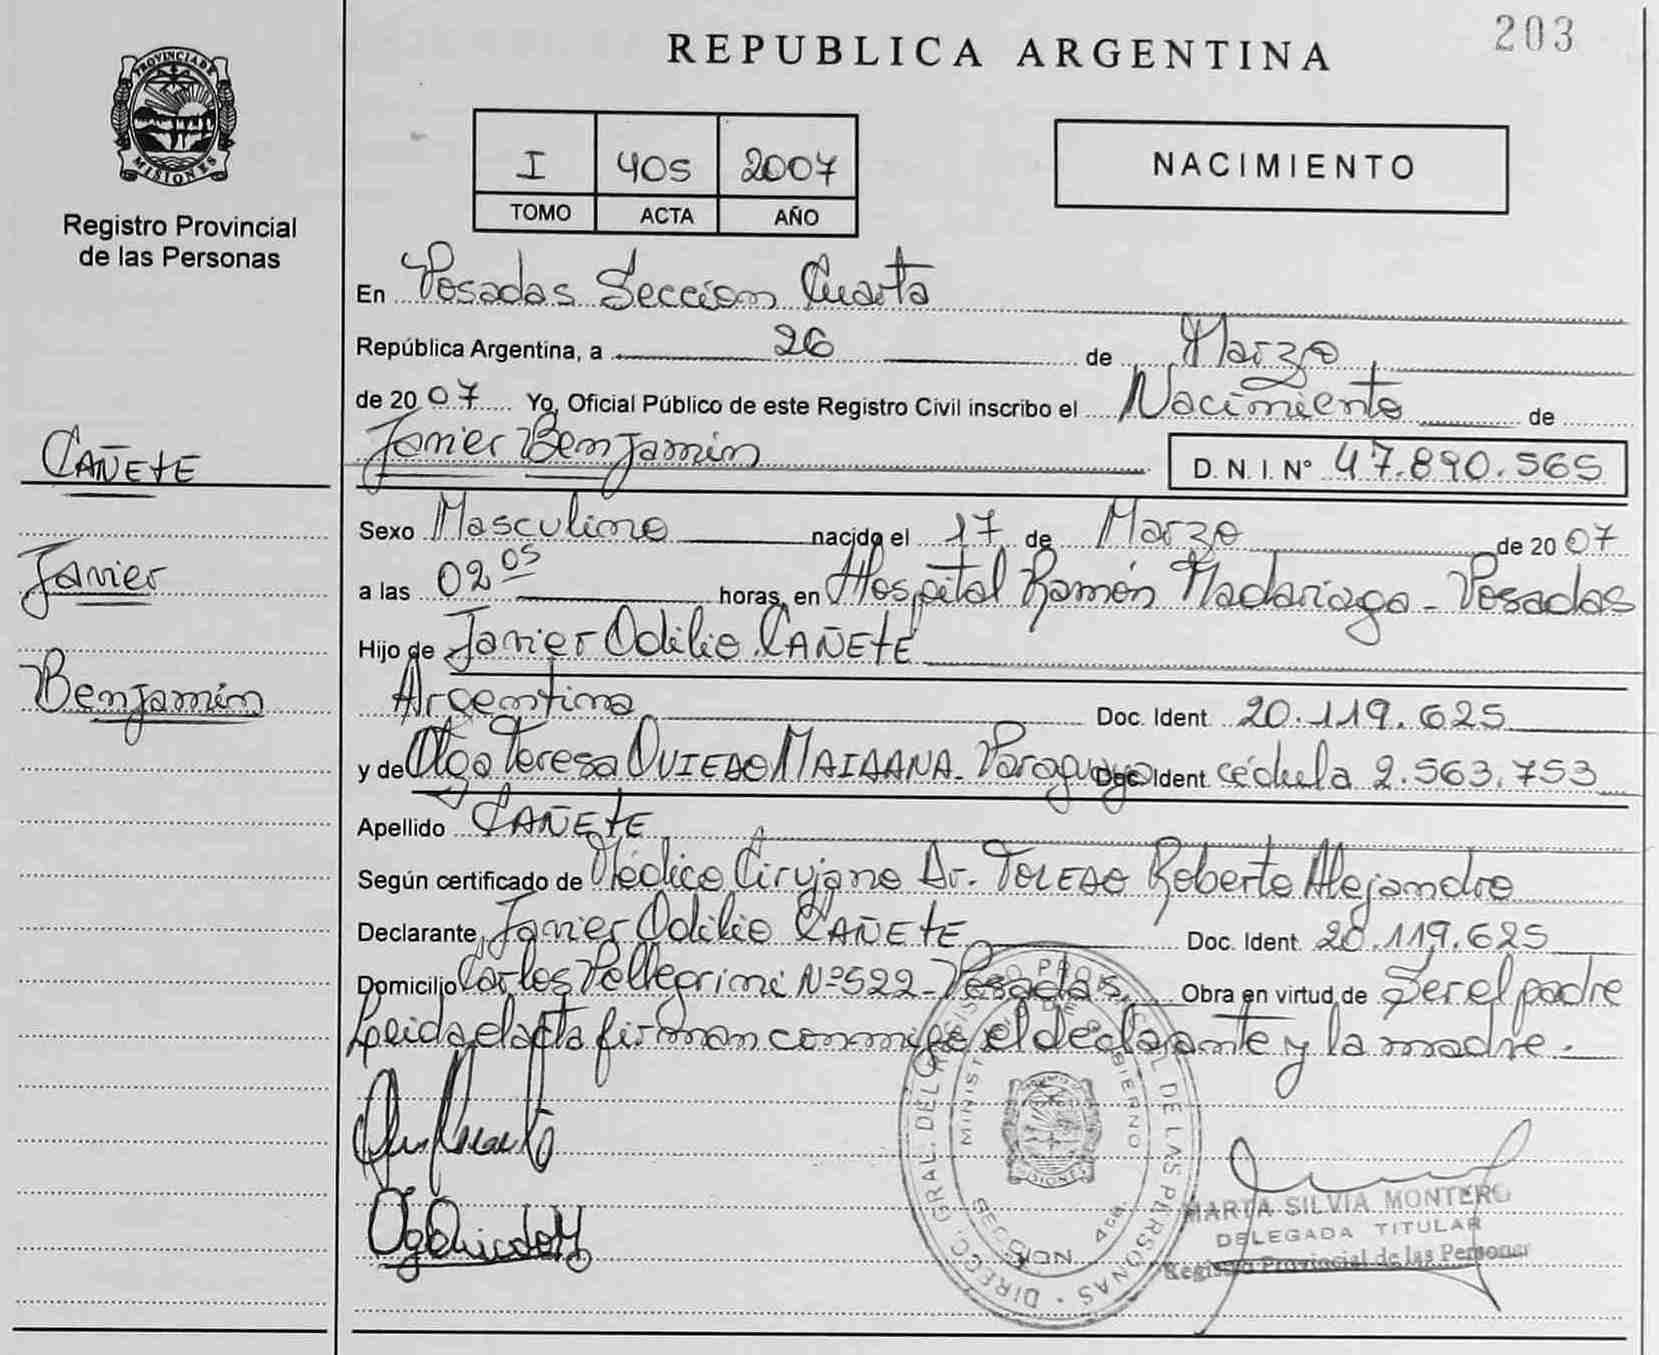 203
REPUBLICA ARGENTINA
PROVINCIA DE
MISIONES
Registro Provincial
de las Personas
I 405 2007
TOMO ACTA AÑO
NACIMIENTO
En Posadas Seccion Cuarta
República Argentina, a 26 de Marzo
de 2007 Yo, Oficial Público de este Registro Civil inscribo el Nacimiento de
Javier Benjamín D. N. I. N° 47.890.565
CAÑEtE
Javier
Benjamín
Sexo Masculino nacido el 17 de Marzo de 2007
a las 02 05 horas, en Hospital Ramón Madariaga - Posadas
Hijo de Javier Odilio CAÑEtE
Argentino Doc. Ident. 20.119.625
y de Olga Teresa OVIEDO MAIDANA - Paraguaya Doc. Ident. cédula 2.563.753
Apellido CAÑEtE
Según certificado de Médico Cirujano Dr. TOLEDO Roberto Alejandro
Declarante, Javier Odilio CAÑEtE Doc. Ident. 20.119.625
Domicilio Carlos Pellegrini Nº 522 - Posadas, Obra en virtud de Ser el padre
Leida el acta firman conmigo el declarante y la madre.
DIREC. GRAL. DEL REGISTRO PROVINCIAL DE LAS PERSONAS
MINISTERIO DE GOBIERNO
SECCION 4ta.
MARTA SILVIA MONTERO
DELEGADA TITULAR
Registro Provincial de las Personas